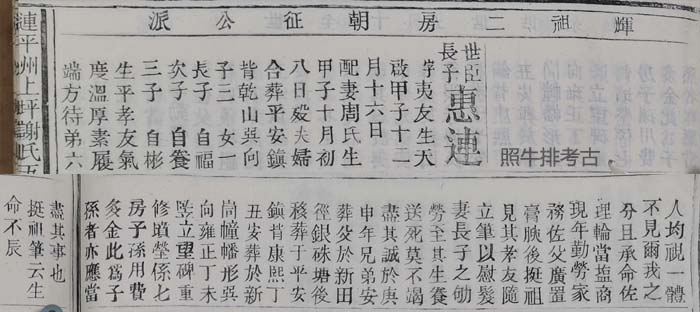 輝祖二房朝征公派
世臣長子 惠連
字夷友生天
啟甲子十二
月十六日
配妻周氏生
甲子十月初
八日歿夫婦
合葬平安鎮
皆乾山巽向
子三 女一
長子 自福
次子 自養
三子 自彬
生平孝友氣
度溫厚素履
端方待弟六
連平州上坪謝氏
照牛排考古
人均視一體
不見爾我之
分且承命佐
理輪當塩商
現年勤勞家
務佐父廣置
膏腴後挺祖
見其孝友隨
立筆以慰髮
妻長子之劬
勞至其生養
送死莫不竭
盡其誠於庚
申年兄弟安
葬父於新田
徑銀硃塘後
移葬于平安
鎮肯康熙丁
丑安葬於新
尚幢幡形巽
向雍正丁未
竪立望碑重
修墳塋係七
房子孫用費
多金此為子
孫者亦應當
盡其事也
挺祖筆云生
命不辰